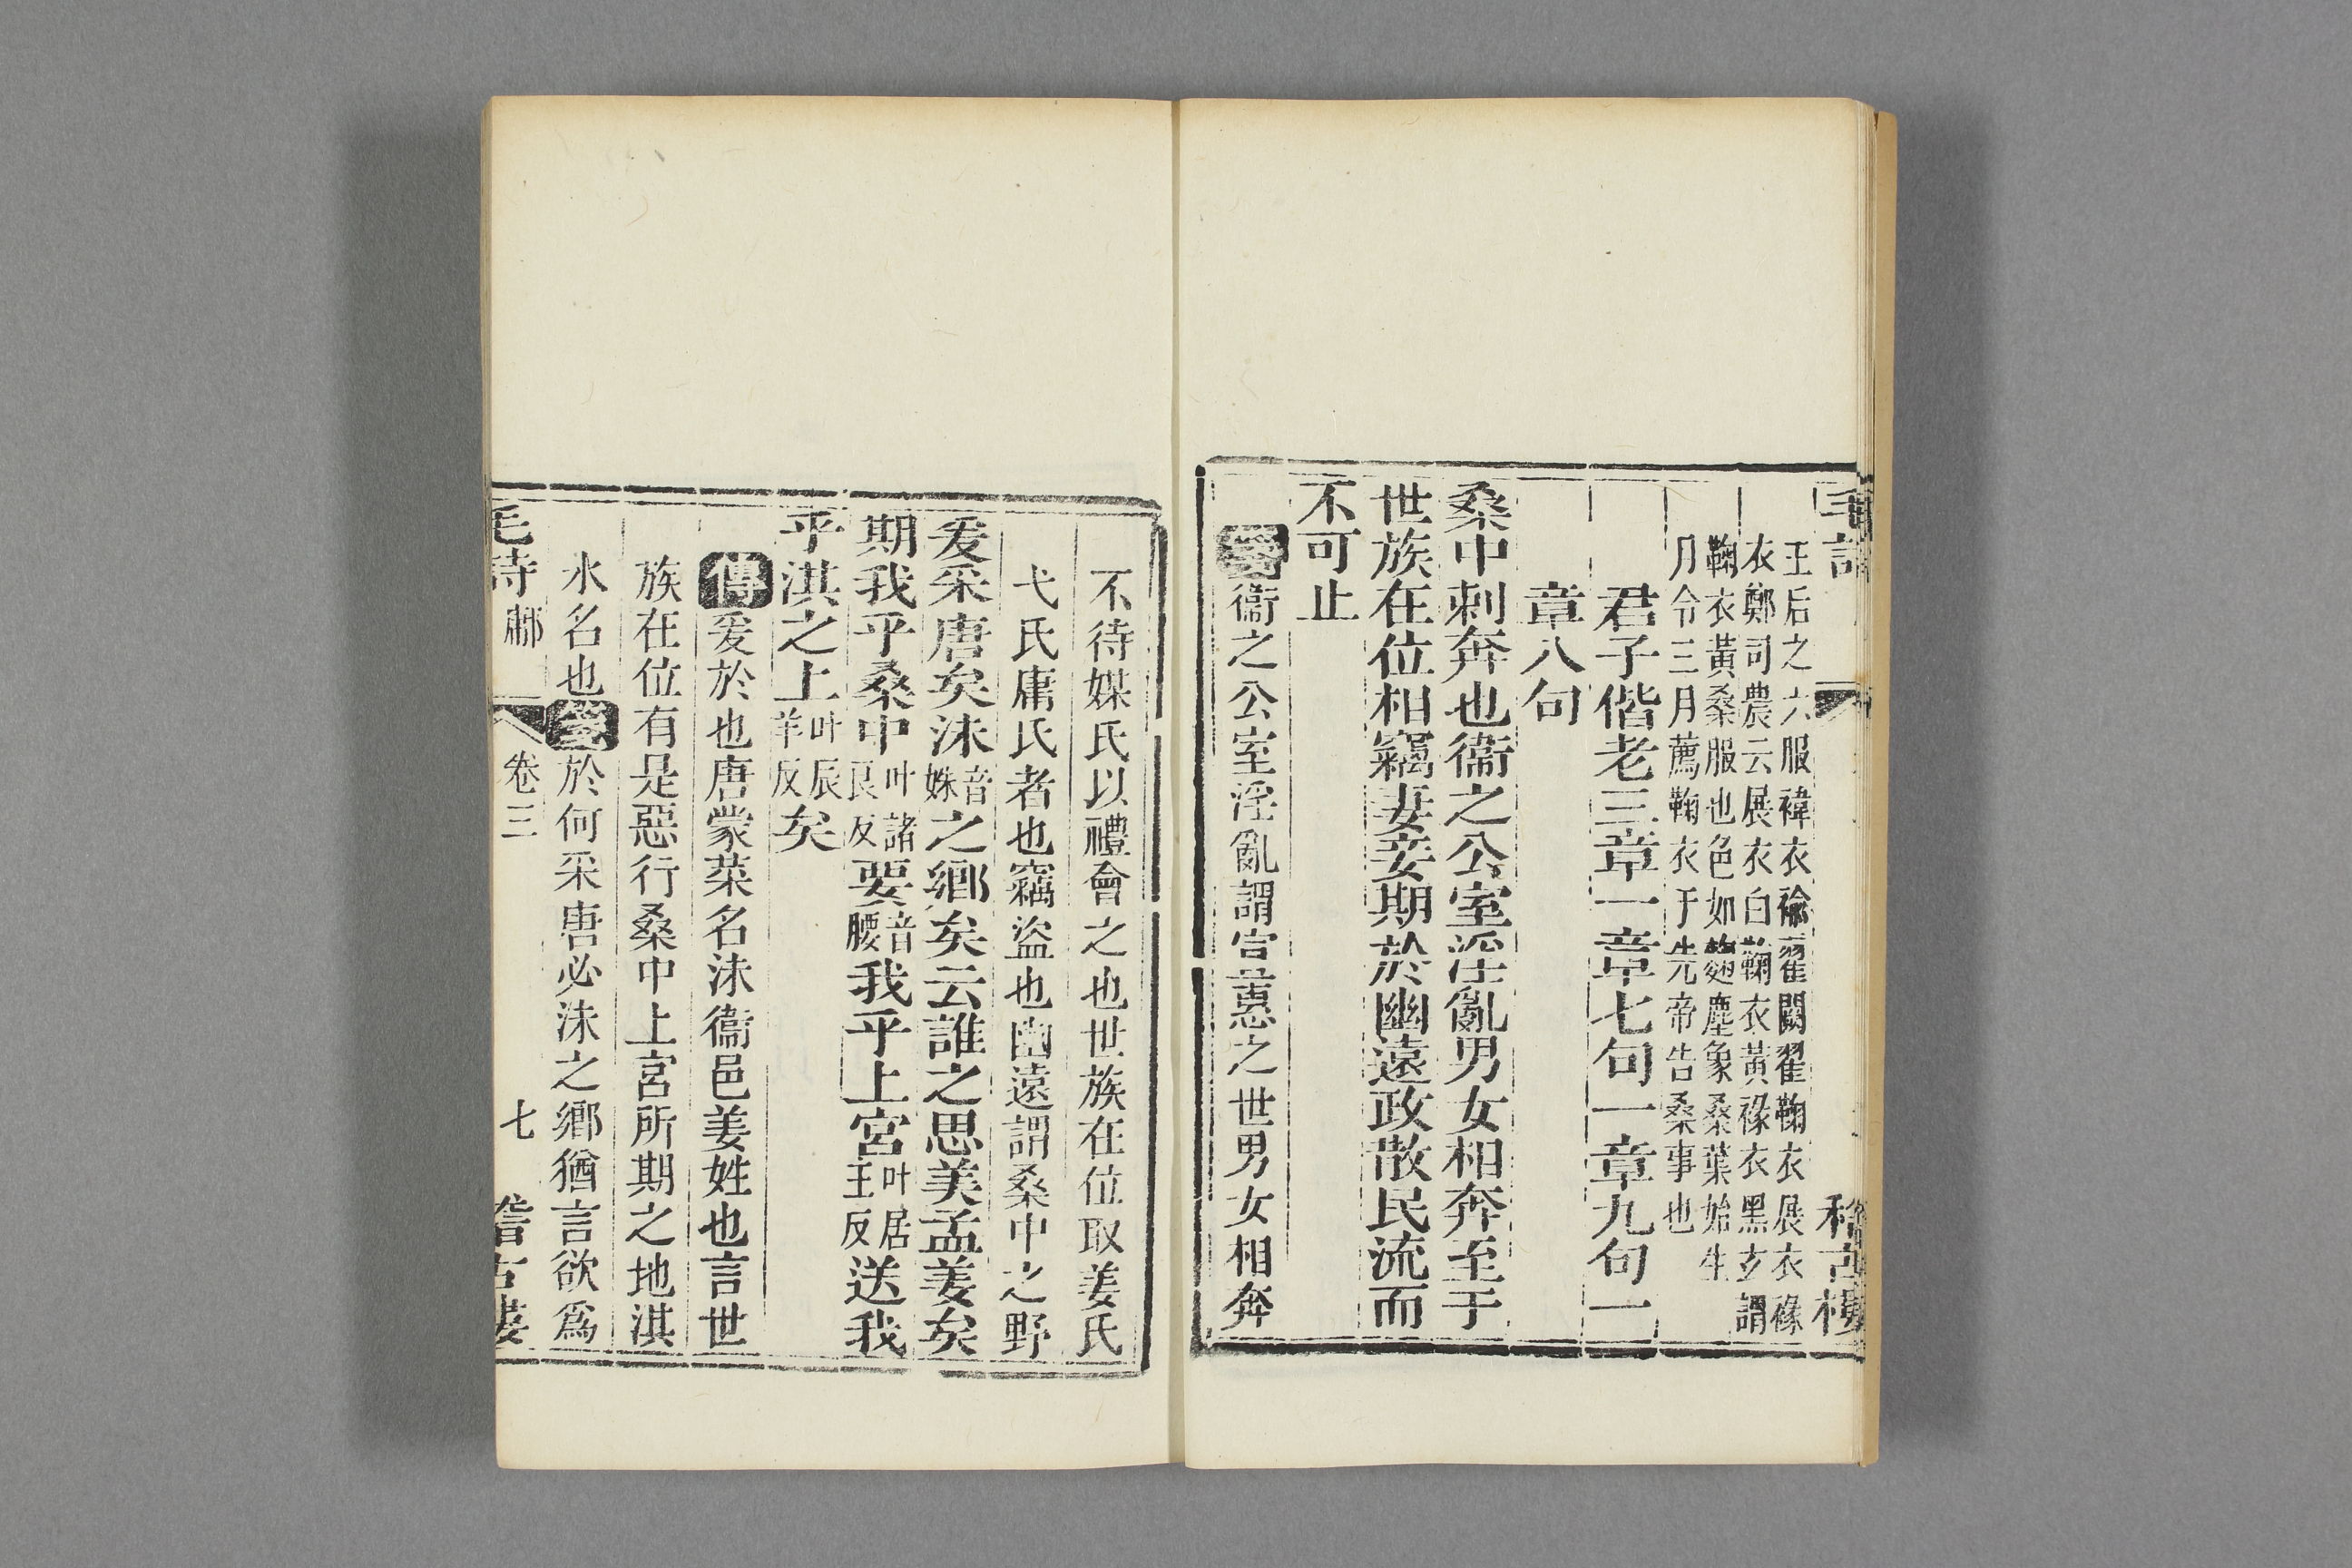 毛詩
稽古樓
王后之六服褘衣褕翟闕翟鞠衣展衣褖
衣鄭司農云展衣白鞠衣黃褖衣黑玄謂
鞠衣黃桑服也色如麴塵象桑葉始生
月令三月薦鞠衣于先帝告桑事也
君子偕老三章一章七句一章九句一
章八句
桑中刺奔也衞之公室淫亂男女相奔至于
世族在位相竊妻妾期於幽遠政散民流而
不可止
箋衞之公室淫亂謂宣惠之世男女相奔
不待媒氏以禮會之也世族在位取姜氏
弋氏庸氏者也竊盜也幽遠謂桑中之野
爰采唐矣沬音姝之鄉矣云誰之思美孟姜矣
期我乎桑中叶諸良反要音腰我乎上宮叶居王反送我
乎淇之上叶辰羊反矣
傳爰於也唐蒙菜名沬衞邑姜姓也言世
族在位有是惡行桑中上宮所期之地淇
水名也箋於何采唐必沬之鄉猶言欲爲
毛詩 鄘 卷三 七 稽古樓